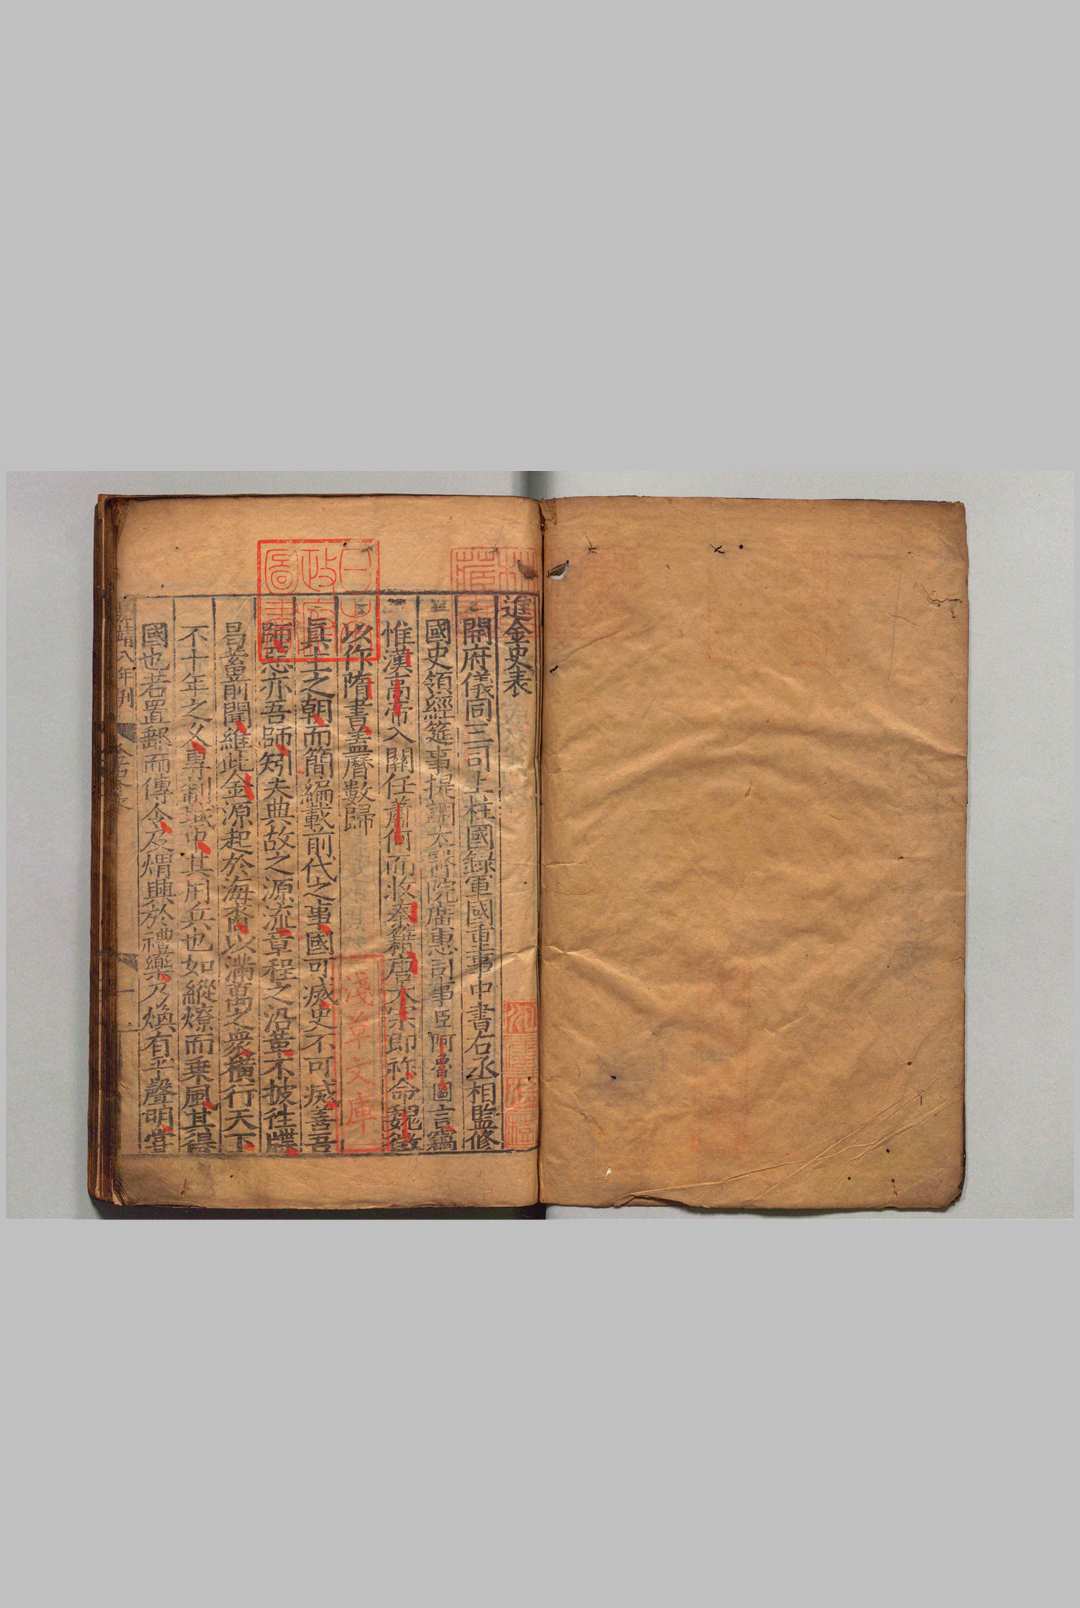 進金史表
開府儀同三司上柱國錄軍國重事中書右丞相監修
國史領經筵事提調太醫院廣惠司事臣阿魯圖言竊
惟漢高帝入關任蕭何而收秦籍唐太宗即祚命魏徵
以作隋書蓋曆數歸
真主之朝而簡編載前代之事國可滅史不可滅善吾
師惡亦吾師矧夫典故之源流章程之沿革不披往牒
曷蓄前聞維此金源起於海裔以滿萬之衆橫行天下
不十年之久專制域中其用兵也如縱燎而乗風其得
國也若置郵而傳令及煟興於禮樂乃煥有乎聲明嘗
嘉靖八年刊
淺草文庫